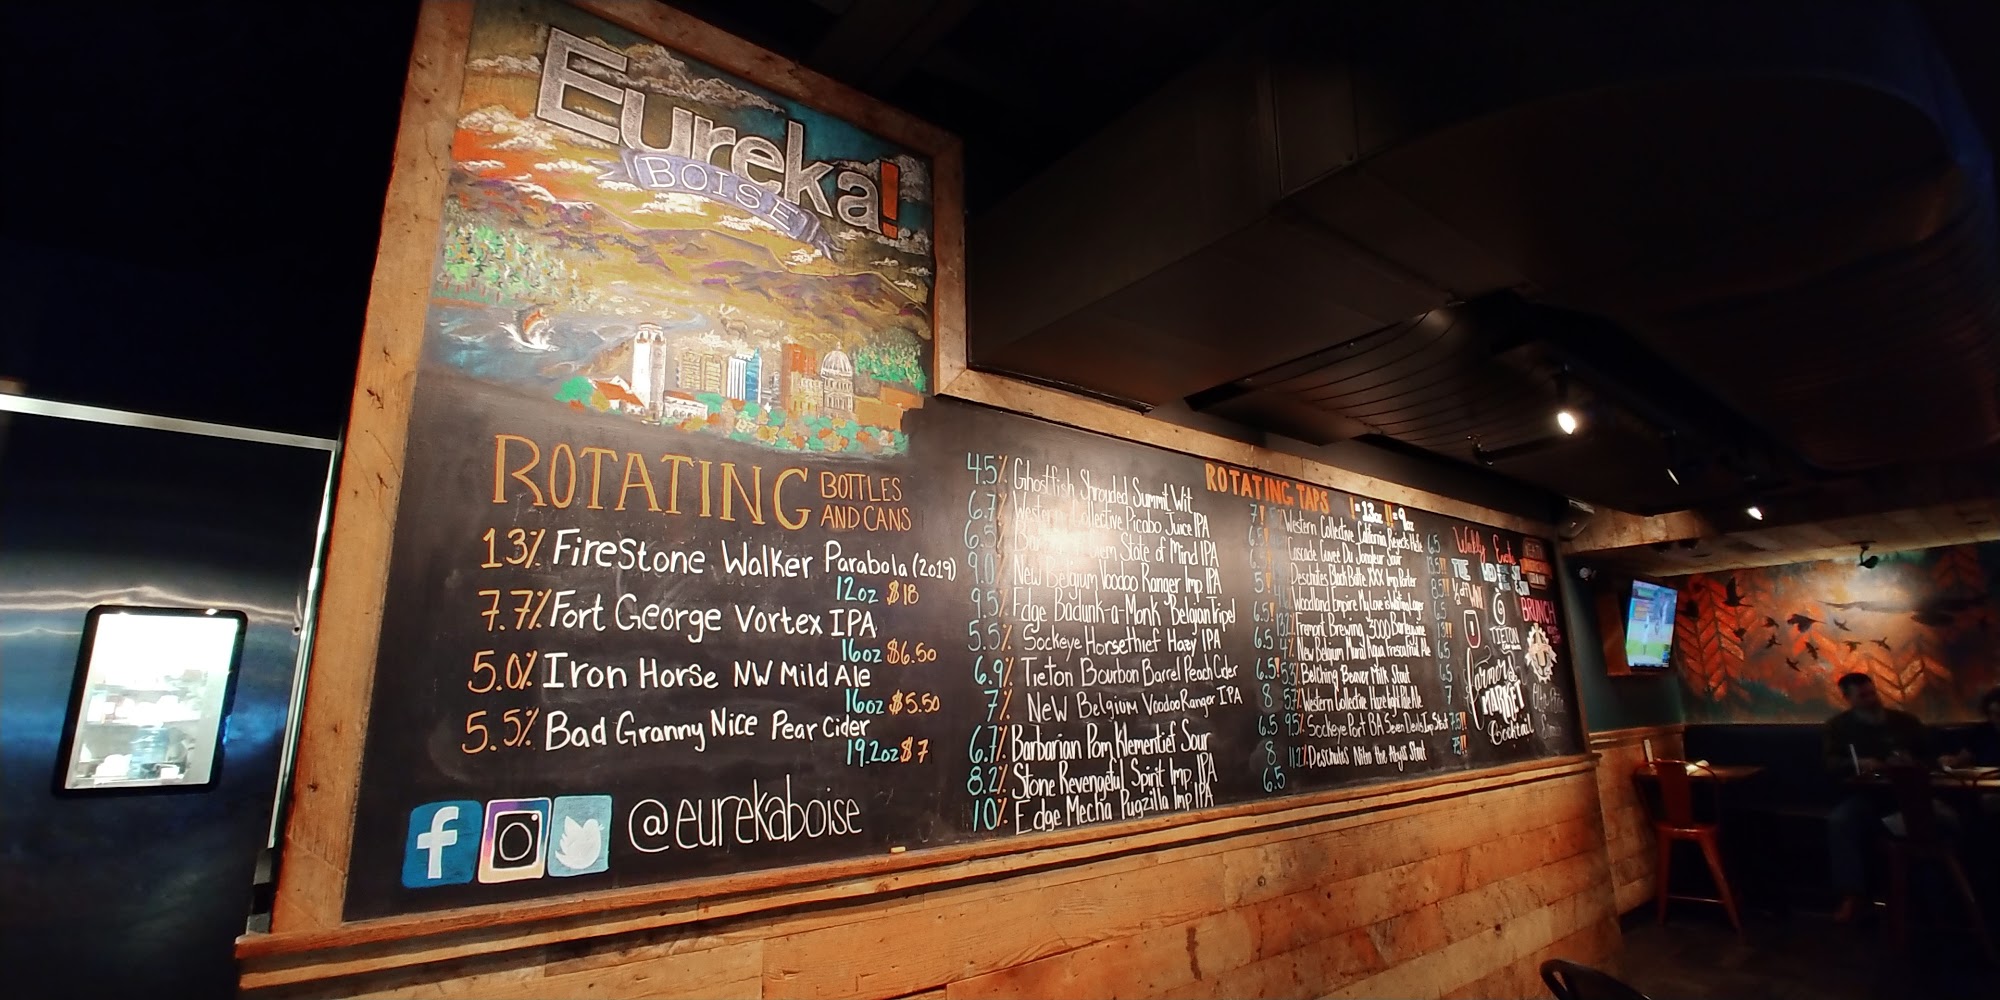 Eureka!
BOISE
ROTATING BOTTLES
AND CANS
13% Firestone Walker Parabola (2019)
12oz $18
7.7% Fort George Vortex IPA
16oz $6.50
5.0% Iron Horse NW Mild Ale
16oz $5.50
5.5% Bad Granny Nice Pear Cider
19.2oz $7
@eurekaboise
ROTATING TAPS != 13oz !!= 9oz
4.5% Ghostfish Shrouded Summit Wit
6.7% Western Collective Picabo Juice IPA
6.5% State of Mind IPA
9.0% New Belgium Voodoo Ranger Imp IPA
9.5% Edge Badunk-a-Monk Belgian Tripel
5.5% Sockeye Horsethief Hazy IPA 6.5
6.9% Tieton Bourbon Barrel Peach Cider 6.5!
7% New Belgium Voodoo Ranger IPA 8
6.7% Barbarian Pom Klementief Sour 6.5
8.2% Stone Revengeful Spirit Imp IPA 8
10% Edge Mecha Pugzilla Imp IPA 6.5
Western Collective California 6.5
Cascade Cuvee Du Jongleur Sour
Deschutes Black Butte XXX Imp Porter
Woodland Empire My Love is Lager
Fremont Brewing 3000 Barleywine
New Belgium Mural Agua Fresca Ale
Belching Beaver Milk Stout
Western Collective Pale Ale 7
9.5% Sockeye Port BA Seven Devils Imp Stout 7.5!!
11.2% Deschutes Nitro the Abyss Stout
BRUNCH
TIETON
Farmers
MARKET
Cocktail